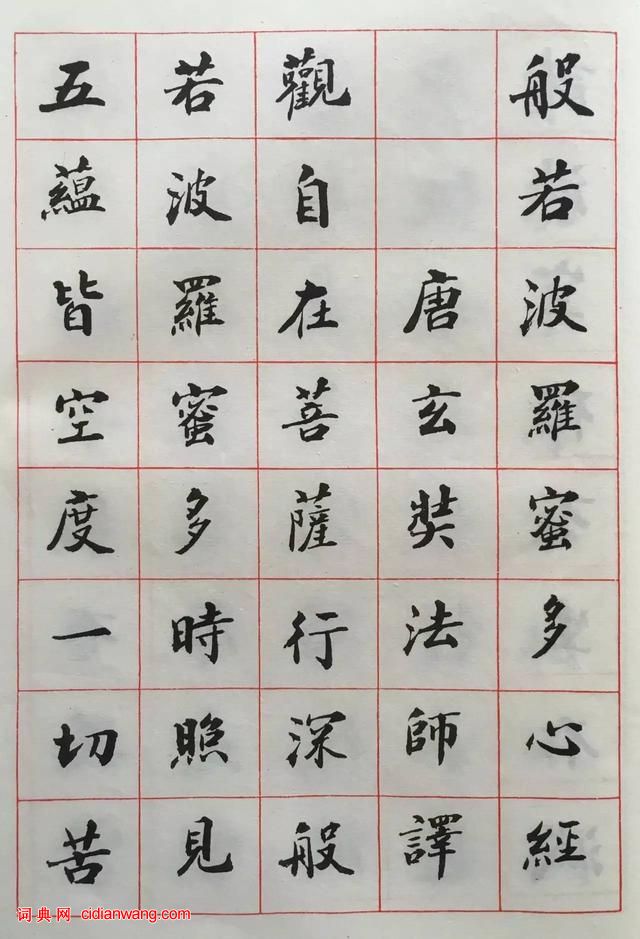 般若波羅蜜多心經
唐玄奘法師譯
觀自在菩薩行深般
若波羅蜜多時照見
五蘊皆空度一切苦
词典网 cidianwang.com